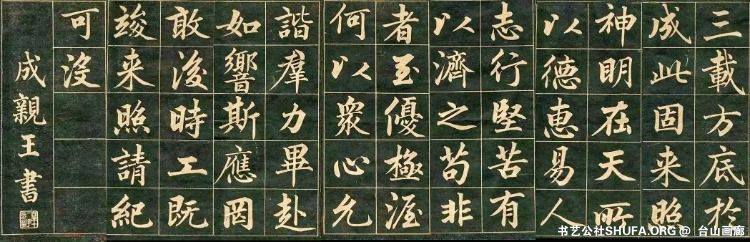 三載方底於
成此固来昭
神明在天所
以德惠易人
志行堅苦有
以濟之苟非
者至優極渥
何以衆心允
諧羣力畢赴
如響斯應罔
敢後時工既
竣来照請紀
可没
成親王書
书艺公社SHUFA.ORG @ 台山画廊